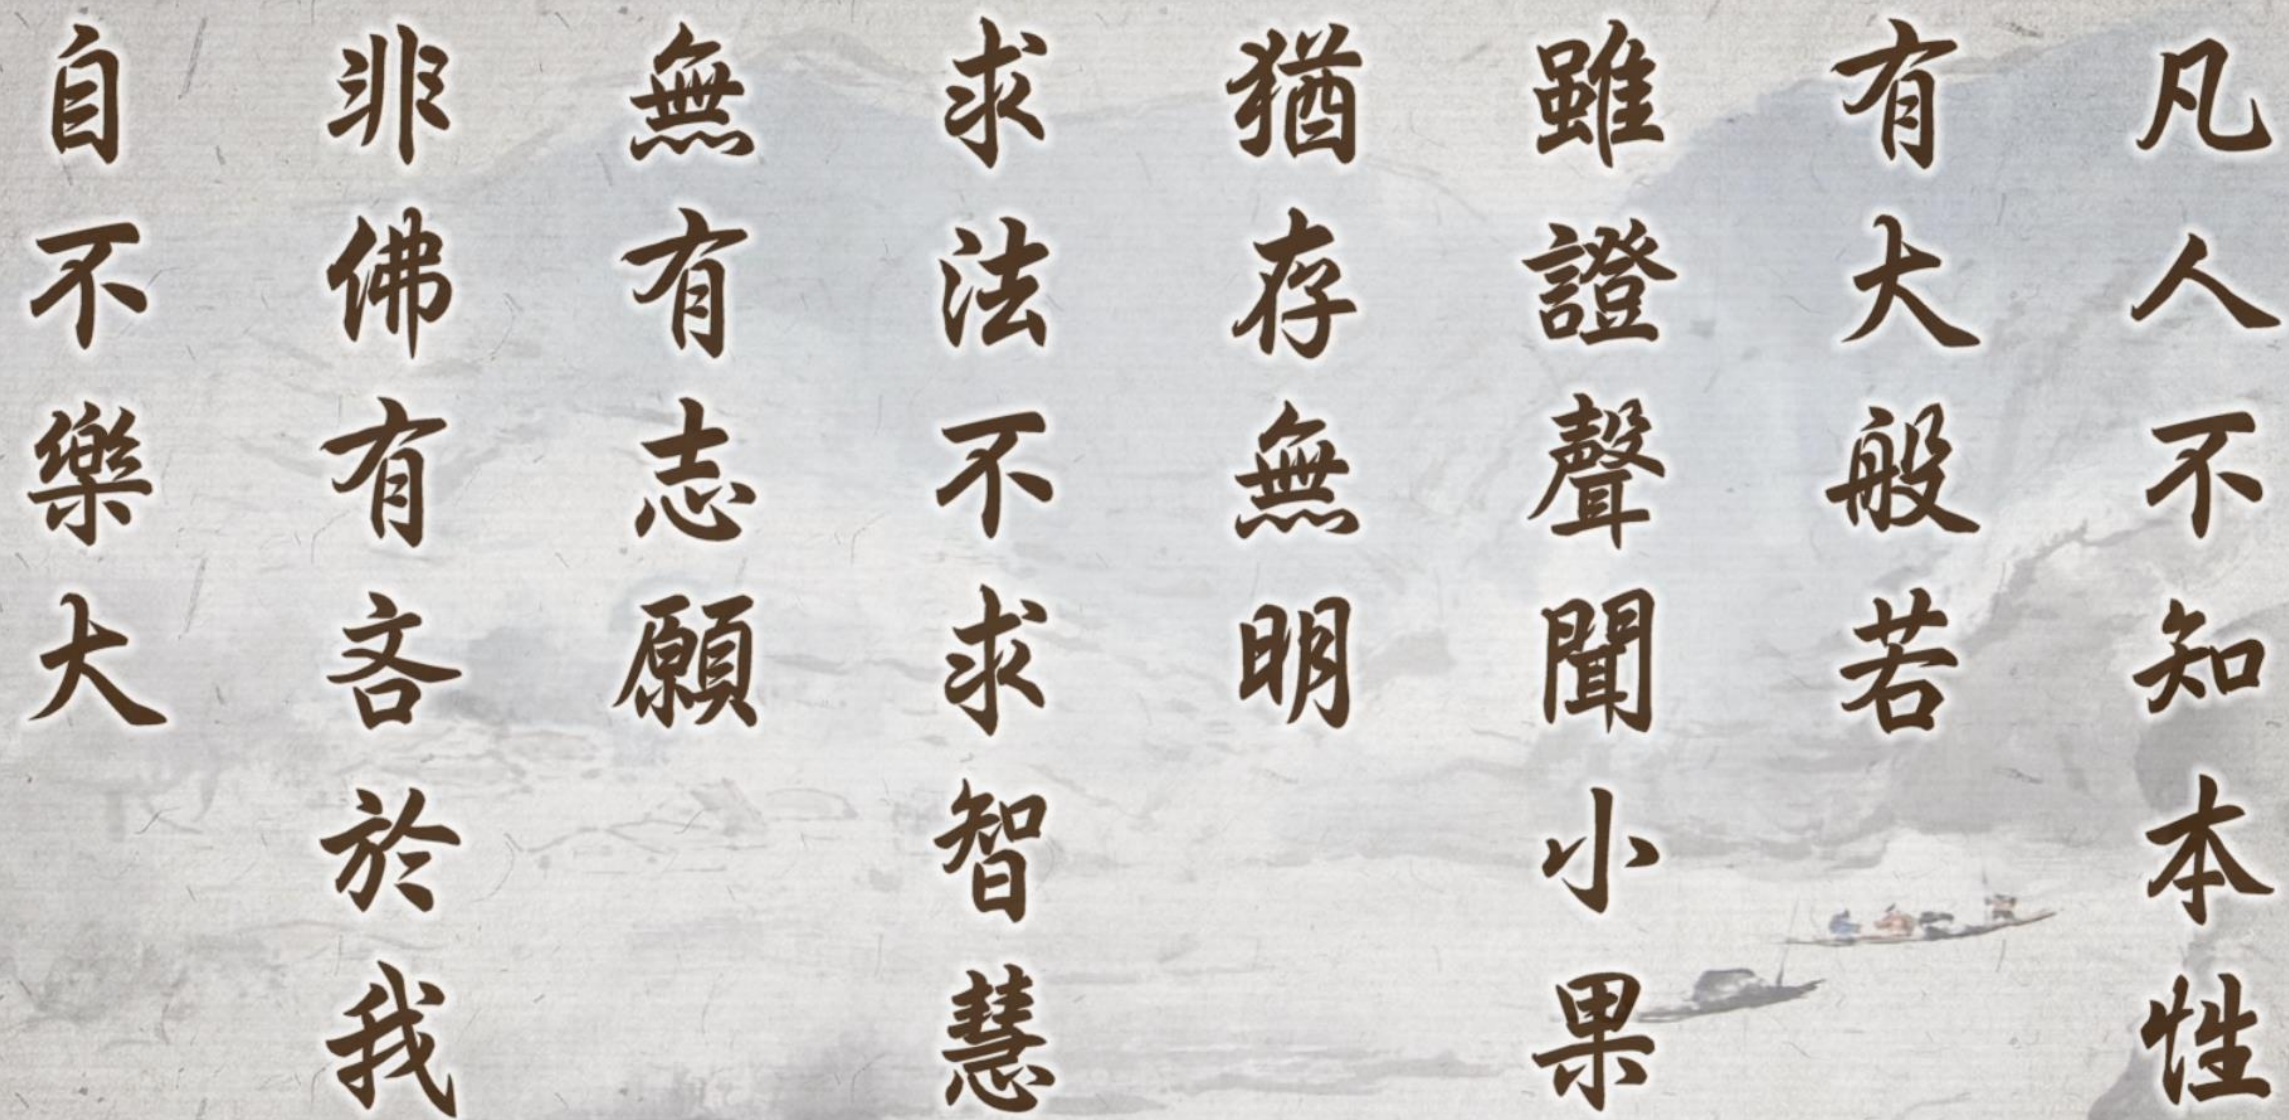 凡人不知本性
有大般若
雖證聲聞小果
猶存無明
求法不求智慧
無有志願
非佛有吝於我
自不樂大